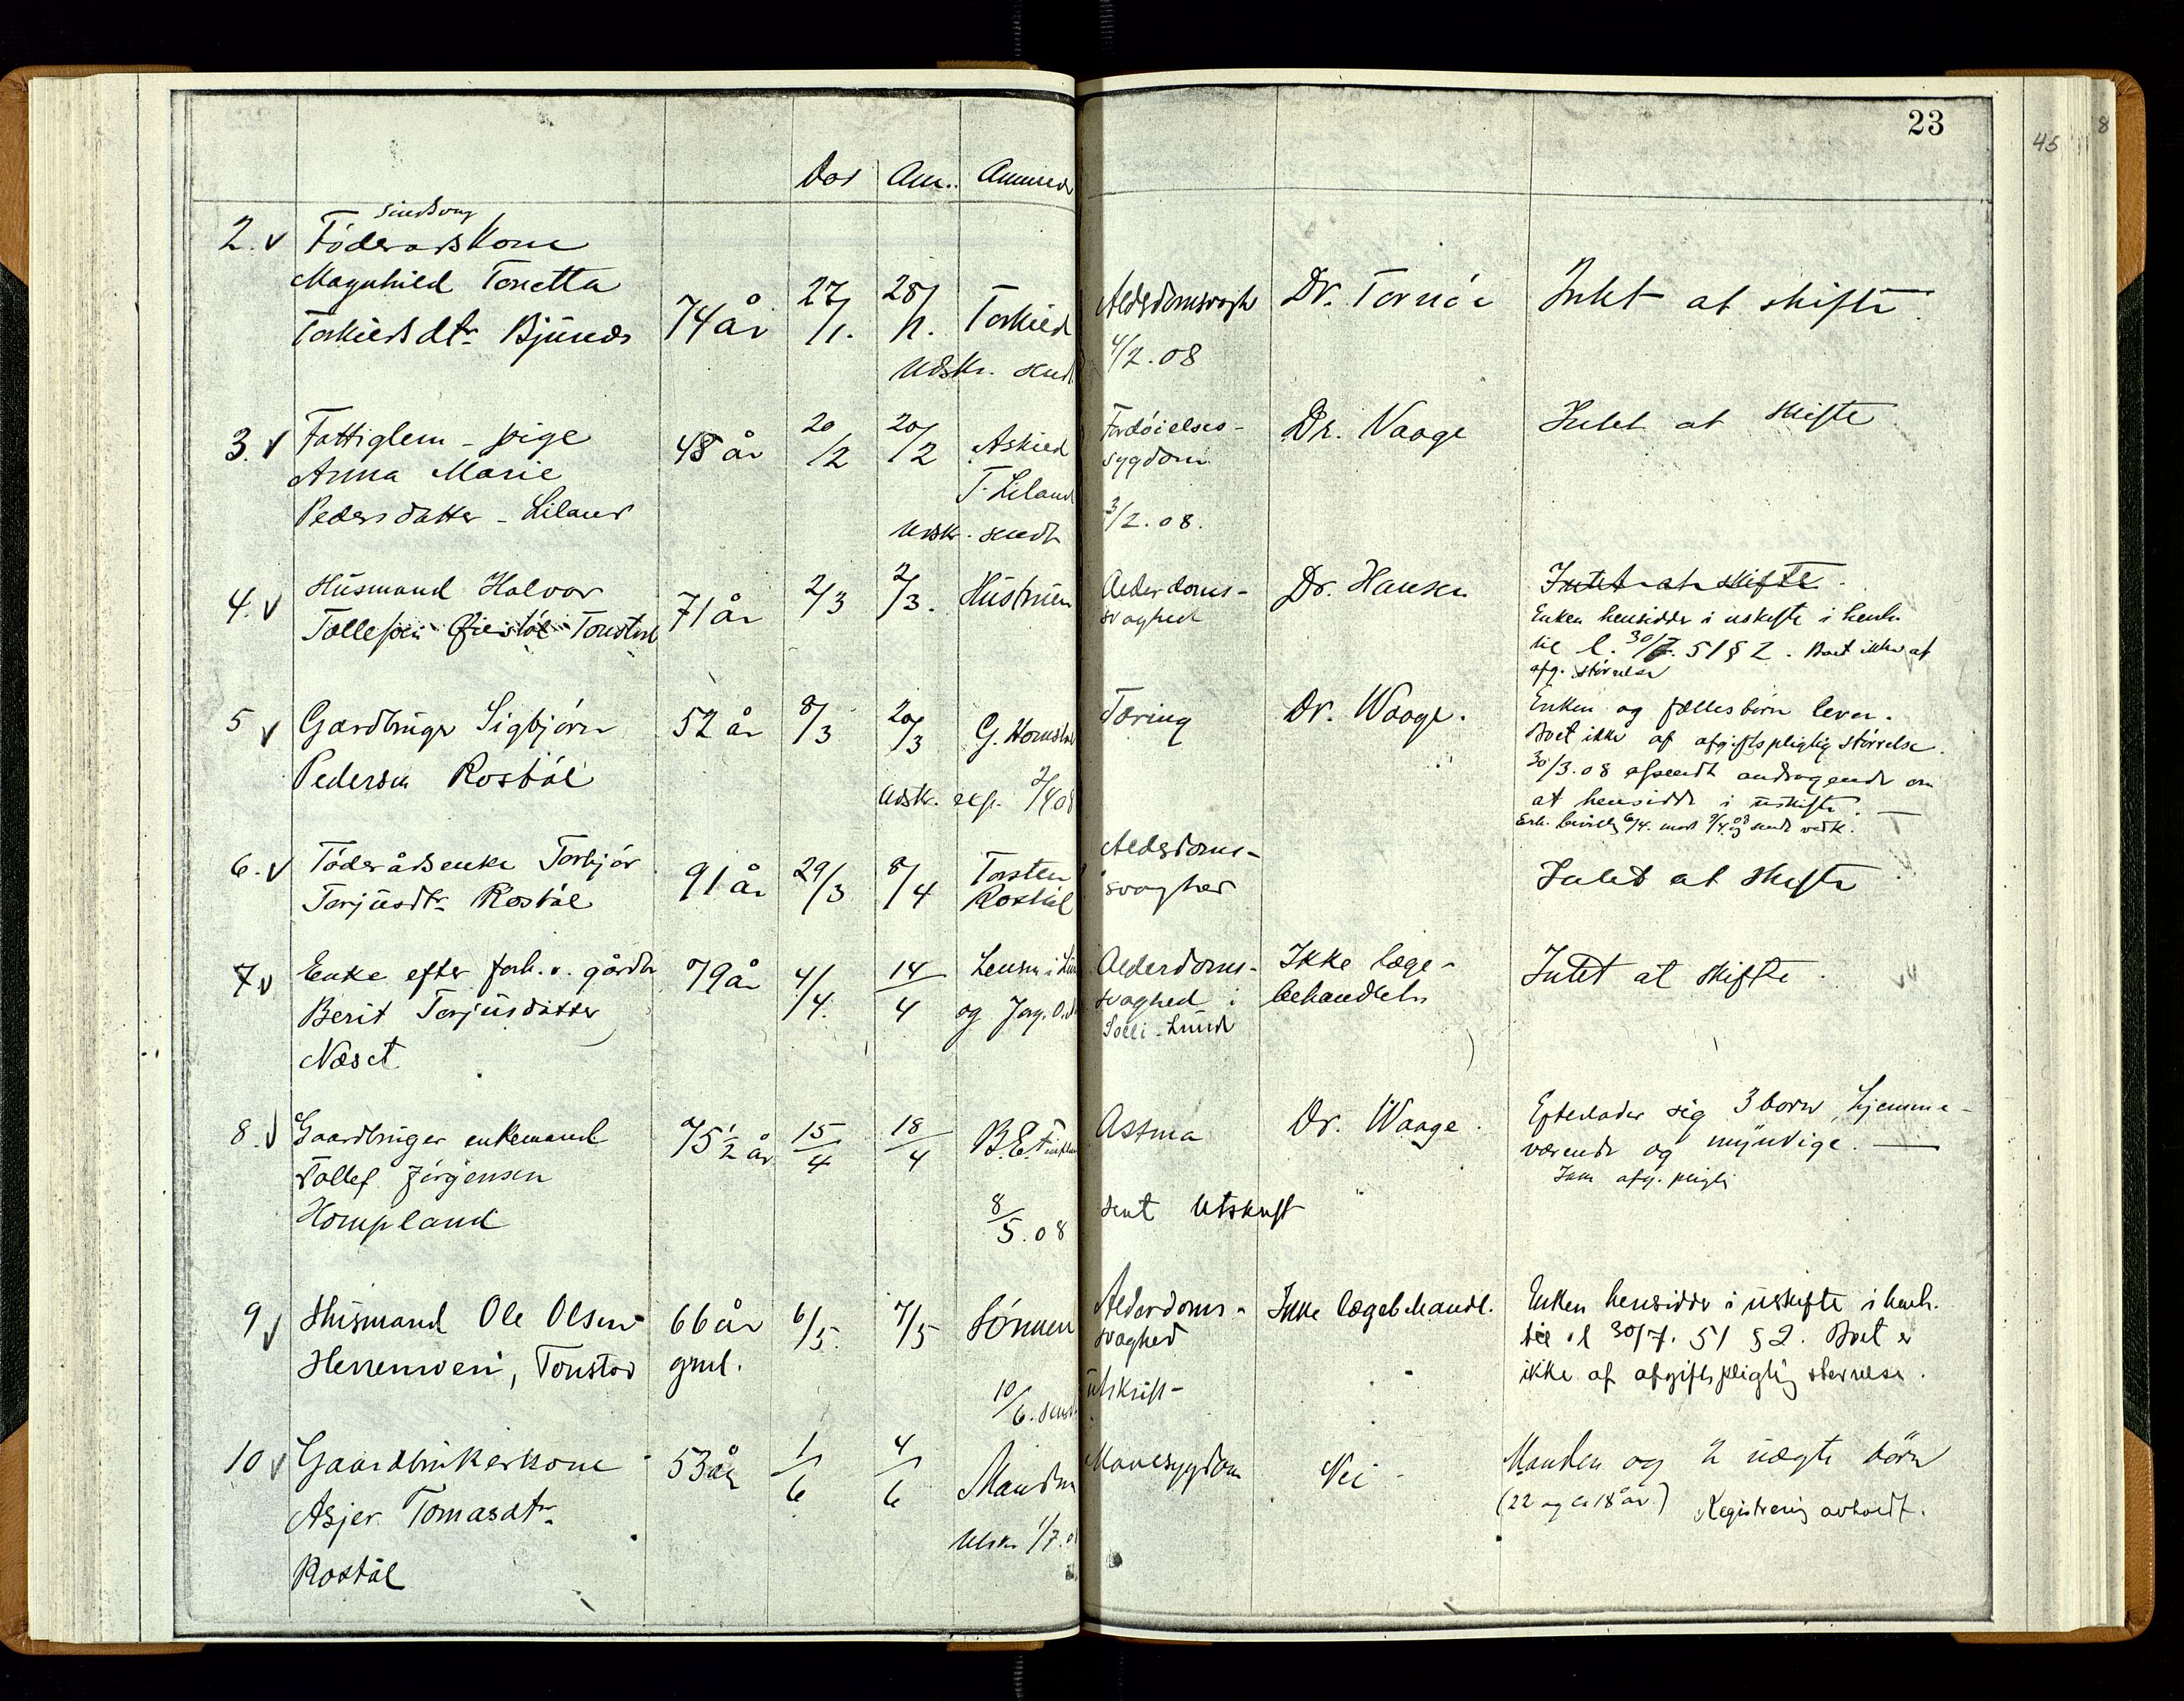 23
45
8
Död Anm. Anmeld
2. v
sindsvag
Föderadskone
Magnhild Tonetta
Torkieldsdtr. Bjünes
74 år
27/1.
28/1.
Torkield
Udskr. sendt
Alderdomsvagh
4/2.08
Dr. Tornöe
Intet at skifte.
3. v
Fattiglem - pige
Anna Marie
Pedersdatter - Liland
48 år
20/2
20/2
Askield
T. Liland
Udskr. sendt
Fordöielses-
sygdom
3/2.08.
Dr. Vaage
Intet at skifte
4. v
Husmand Halvor
Tollefsen Tonstad
71 år
2/3
2/3.
Hustruen
Alderdoms-
svaghed
Dr. Hansen
Intet at skifte.
Enken hensidder i uskifte i henh.
til l. 30/7. 51 § 2. Boet ikke af
afg. störrelse
5 v
Gardbruger Sigbjörn
Pedersen Rostöl
52 år
8/3
20/3
G. Homstad
Udskr. exp. 2/4 08
Tæring
Dr. Waage.
Enken og fællesbörn lever.
Boet ikke af afgiftspligtig störrelse.
30/3.08 afsendt andragende om
at hensidde i uskifte. —
6. v
Föderådsenke Torbjör
Terjusdtr. Rostöl
91 år
29/3
8/4
Torsten
Rostöl
Alderdoms-
svaghed
Intet at skifte
7 v
Enke efter forh. v. gårdbr
Berit Terjusdatter
Næset
79 år
4/4.
14/4
Lensm. i
og
Alderdoms-
svaghed i
Ikke læge-
behandlet
Intet at skifte.
8. v
Gaardbruger enkemand
Tollef Jörgensen
Hompland
75 1/2 år
15/4
18/4
B.E.
8/5.08
Astma
sent utskrift
Dr. Waage.
Efterlader sig 3 born, hjemme-
værende og myndige. —
9 v
Husmand Ole Olsen
Herremoen, Tonstad
66 år
gml.
6/5.
7/5
Sönnen
10/6. sendt
Alderdoms-
svaghed
utskrift
Ikke lægebehandl.
Enken hensidder i uskifte i henh.
til l 30/7. 51 § 2. Boet er
ikke af afgiftspligtig störrelse.
10 v
Gaardbrukerkone
Asjer Tomasdtr.
Rostöl
53 år
1/6
4/6
Manden
Utskr. 1/7.0
Mavesygdom
Nei
Manden og 2 uægte börn
(22 og ca 18 år.) Registrering avholdt.